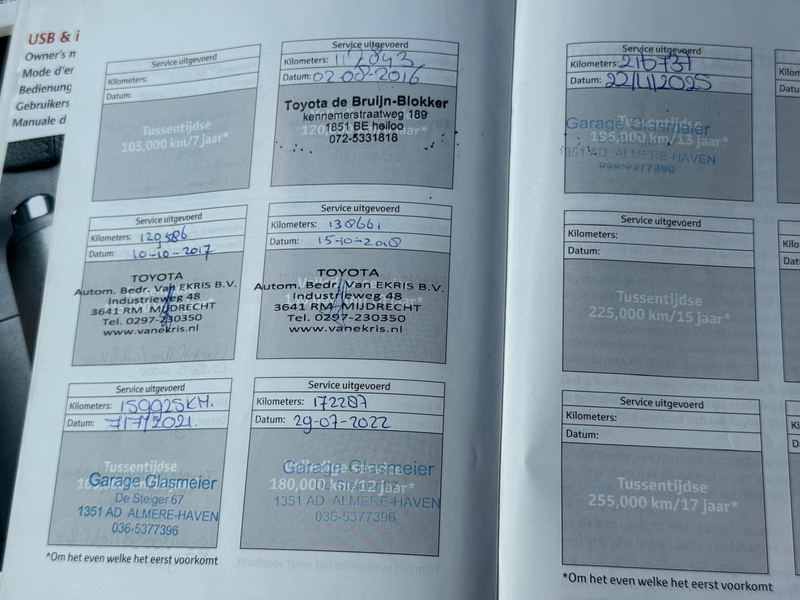 USB & i
Owner's m
Mode d'er
Bedienung
Gebruikers
Manuale d
Service uitgevoerd
Kilometers:
Datum:
Tussentijdse
105,000 km/7 jaar*
Service uitgevoerd
Kilometers:
Datum: 02-08-2016
Toyota de Bruijn-Blokker
kennemerstraatweg 189
1851 BE heiloo
072-5331818
Service uitgevoerd
Kilometers: 129586
Datum: 10-10-2017
TOYOTA
Autom. Bedr. Van EKRIS B.V.
Industrieweg 48
3641 RM MIJDRECHT
Tel. 0297-230350
www.vanekris.nl
Service uitgevoerd
Kilometers: 138661
Datum: 15-10-2018
TOYOTA
Autom. Bedr. Van EKRIS B.V.
Industrieweg 48
3641 RM MIJDRECHT
Tel. 0297-230350
www.vanekris.nl
Service uitgevoerd
Kilometers: 159925KM.
Datum: 7/7/2021.
Tussentijdse
Garage Glasmeier
De Steiger 67
1351 AD ALMERE-HAVEN
036-5377396
Service uitgevoerd
Kilometers: 172287
Datum: 29-07-2022
Garage Glasmeier
180,000 km/12 jaar*
1351 AD ALMERE-HAVEN
036-5377396
*Om het even welke het eerst voorkomt
Service uitgevoerd
Kilometers: 216737
Datum: 22/11/2025
Tussentijdse
Garage Glasmeier
195,000 km/13 jaar*
1351 AD ALMERE-HAVEN
Service uitgevoerd
Kilometers:
Datum:
Tussentijdse
225,000 km/15 jaar*
Service uitgevoerd
Kilometers:
Datum:
Tussentijdse
255,000 km/17 jaar*
*Om het even welke het eerst voorkomt